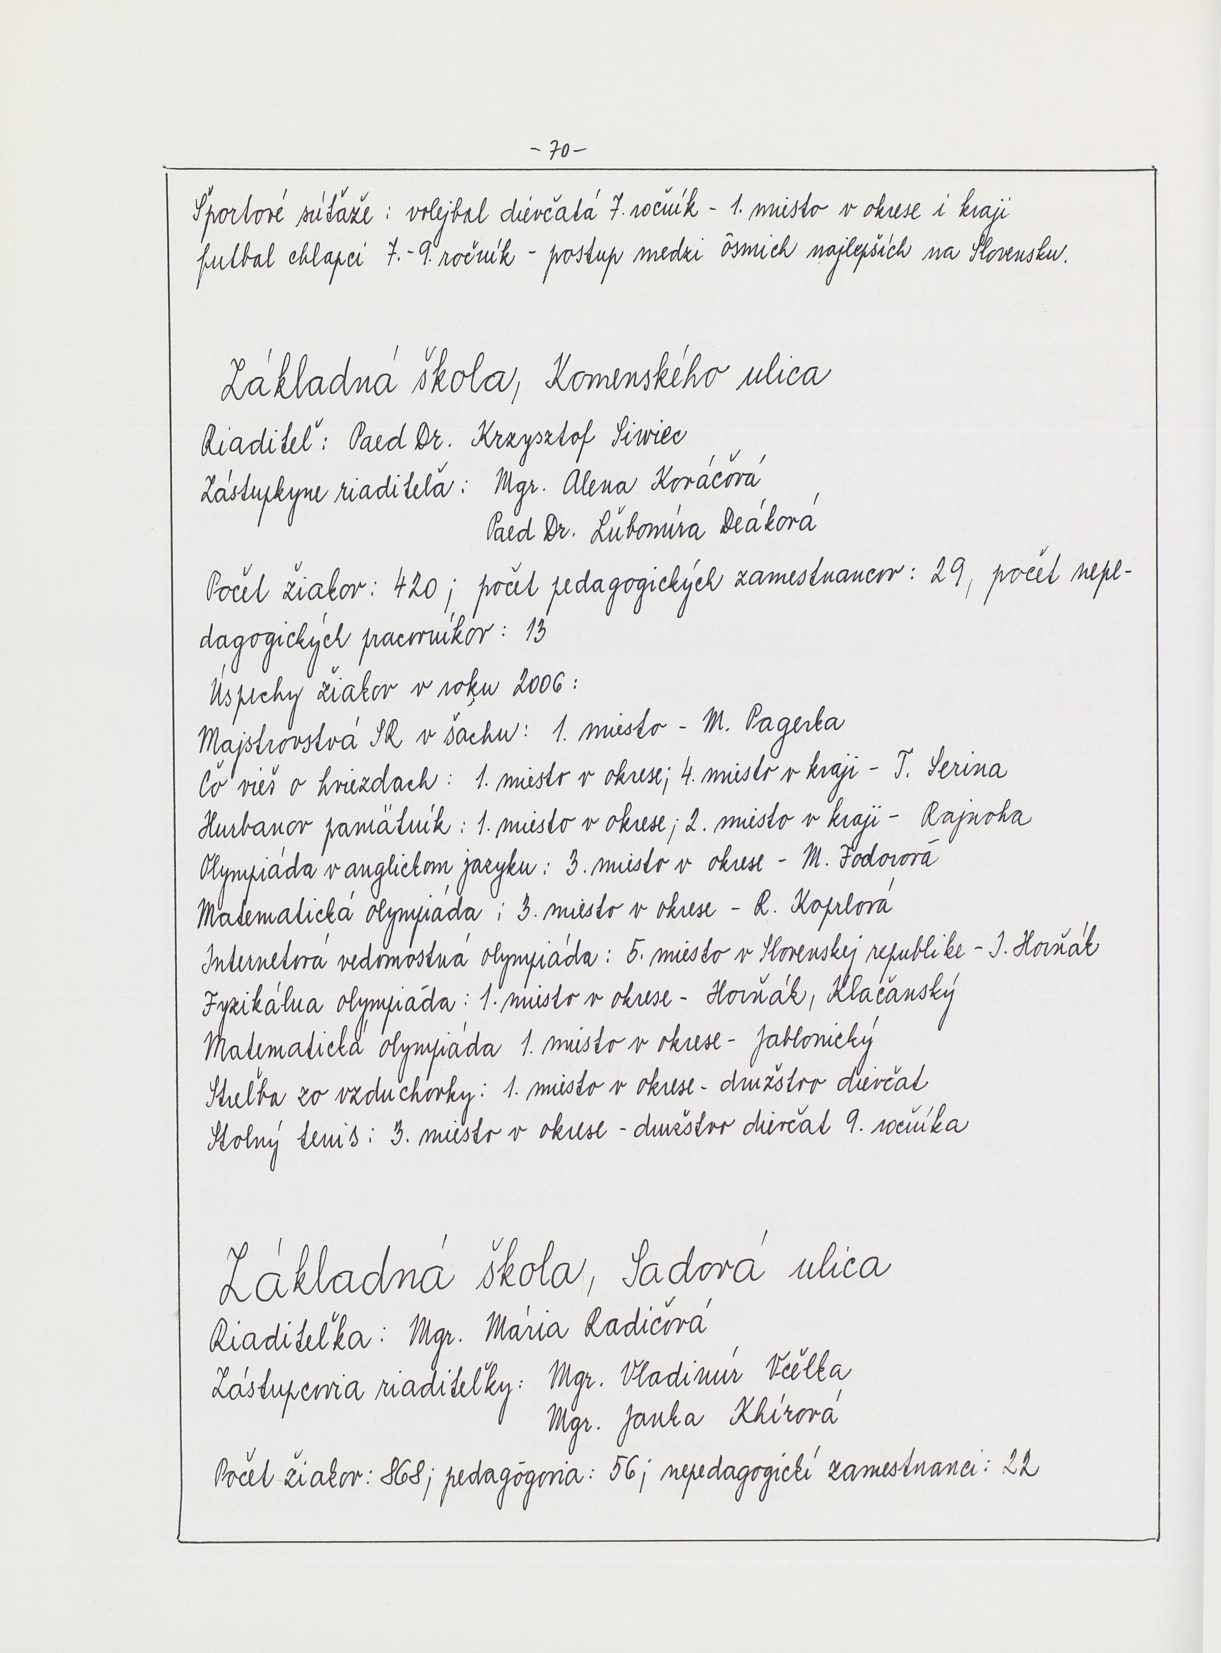 - 70 -
Športové súťaže : volejbal dievčatá 7. ročník - 1. miesto v okrese i kraji
futbal chlapci 7.-9. ročník - postup medzi ôsmich najlepších na Slovensku.
Základná škola, Komenského ulica
Riaditeľ : Paed Dr. Krzysztof Siwiec
Zástupkyne riaditeľa : Mgr. Alena Kováčová
Paed Dr. Ľubomíra Deáková
Počet žiakov : 420 ; počet pedagogických zamestnancov : 29, počet nepe-
dagogických pracovníkov : 13
Úspechy žiakov v roku 2006 :
Majstrovstvá SR v šachu : 1. miesto - M. Pagerka
Čo vieš o hviezdach : 1. miesto v okrese; 4. miesto v kraji - T. Serina
Hurbanov pamätník : 1. miesto v okrese; 2. miesto v kraji - Rajnoha
Olympiáda v anglickom jazyku : 3. miesto v okrese - M. Fodorová
Matematická olympiáda : 3. miesto v okrese - R. Koprlová
Internetová vedomostná olympiáda : 5. miesto v Slovenskej republike - I. Horňák
Fyzikálna olympiáda : 1. miesto v okrese - Horňák, Klačanský
Matematická olympiáda 1. miesto v okrese - Jablonický
Streľba zo vzduchovky : 1. miesto v okrese - družstvo dievčat
Stolný tenis : 3. miesto v okrese - družstvo dievčat 9. ročníka
Základná škola, Sadová ulica
Riaditeľka : Mgr. Mária Radičová
Zástupcovia riaditeľky : Mgr. Vladimír Včelka
Mgr. Janka Khírová
Počet žiakov : 868; pedagógovia : 56; nepedagogickí zamestnanci : 22